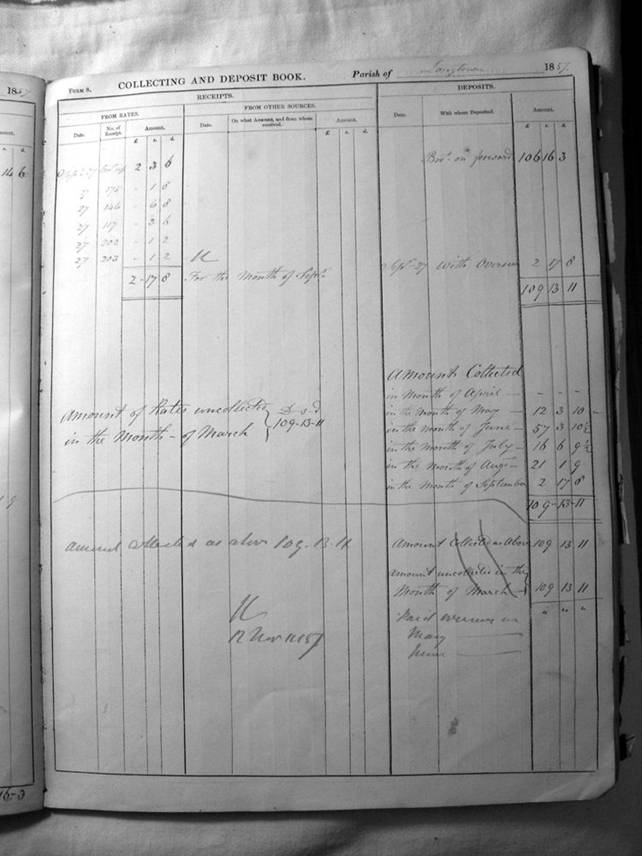 1857
14 6
9
16-3
FORM 8. COLLECTING AND DEPOSIT BOOK. Parish of 1857
RECEIPTS. DEPOSITS.
FROM RATES. FROM OTHER SOURCES.
Date. No. of Receipt. Amount. Date. On what Account, and from whom received. Amount. Date. With whom Deposited. Amount.
£ s. d. £ s. d. £ s. d.
Brot. on forward 106 16 3
Sept. 27 2 3 6
27 175 - 1 8
27 146 - 6 8
27 117 - 3 6
27 202 - 1 2
27 203 - 1 2
Sept. 27 With Overseer 2 17 8
2-17 8 For the Month of Sept.
109 13 11
Amount Collected
in Month of April - - - -
in the Month of May - 12 3 10 -
Amount of Rates uncollected £ s d
in the Month - of March 109-13-11
in the month of June - 57 3 10½
in the month of July - 16 6 9½
in the month of Augt - 21 1 9
in the month of September 2 17 8
109-13-11
amount collected as above 109-13-11
Amount Collected as Above 109 13 11
amount uncollected in the
Month of March - 109 13 11
" " "
12 Nov 1857
May
June